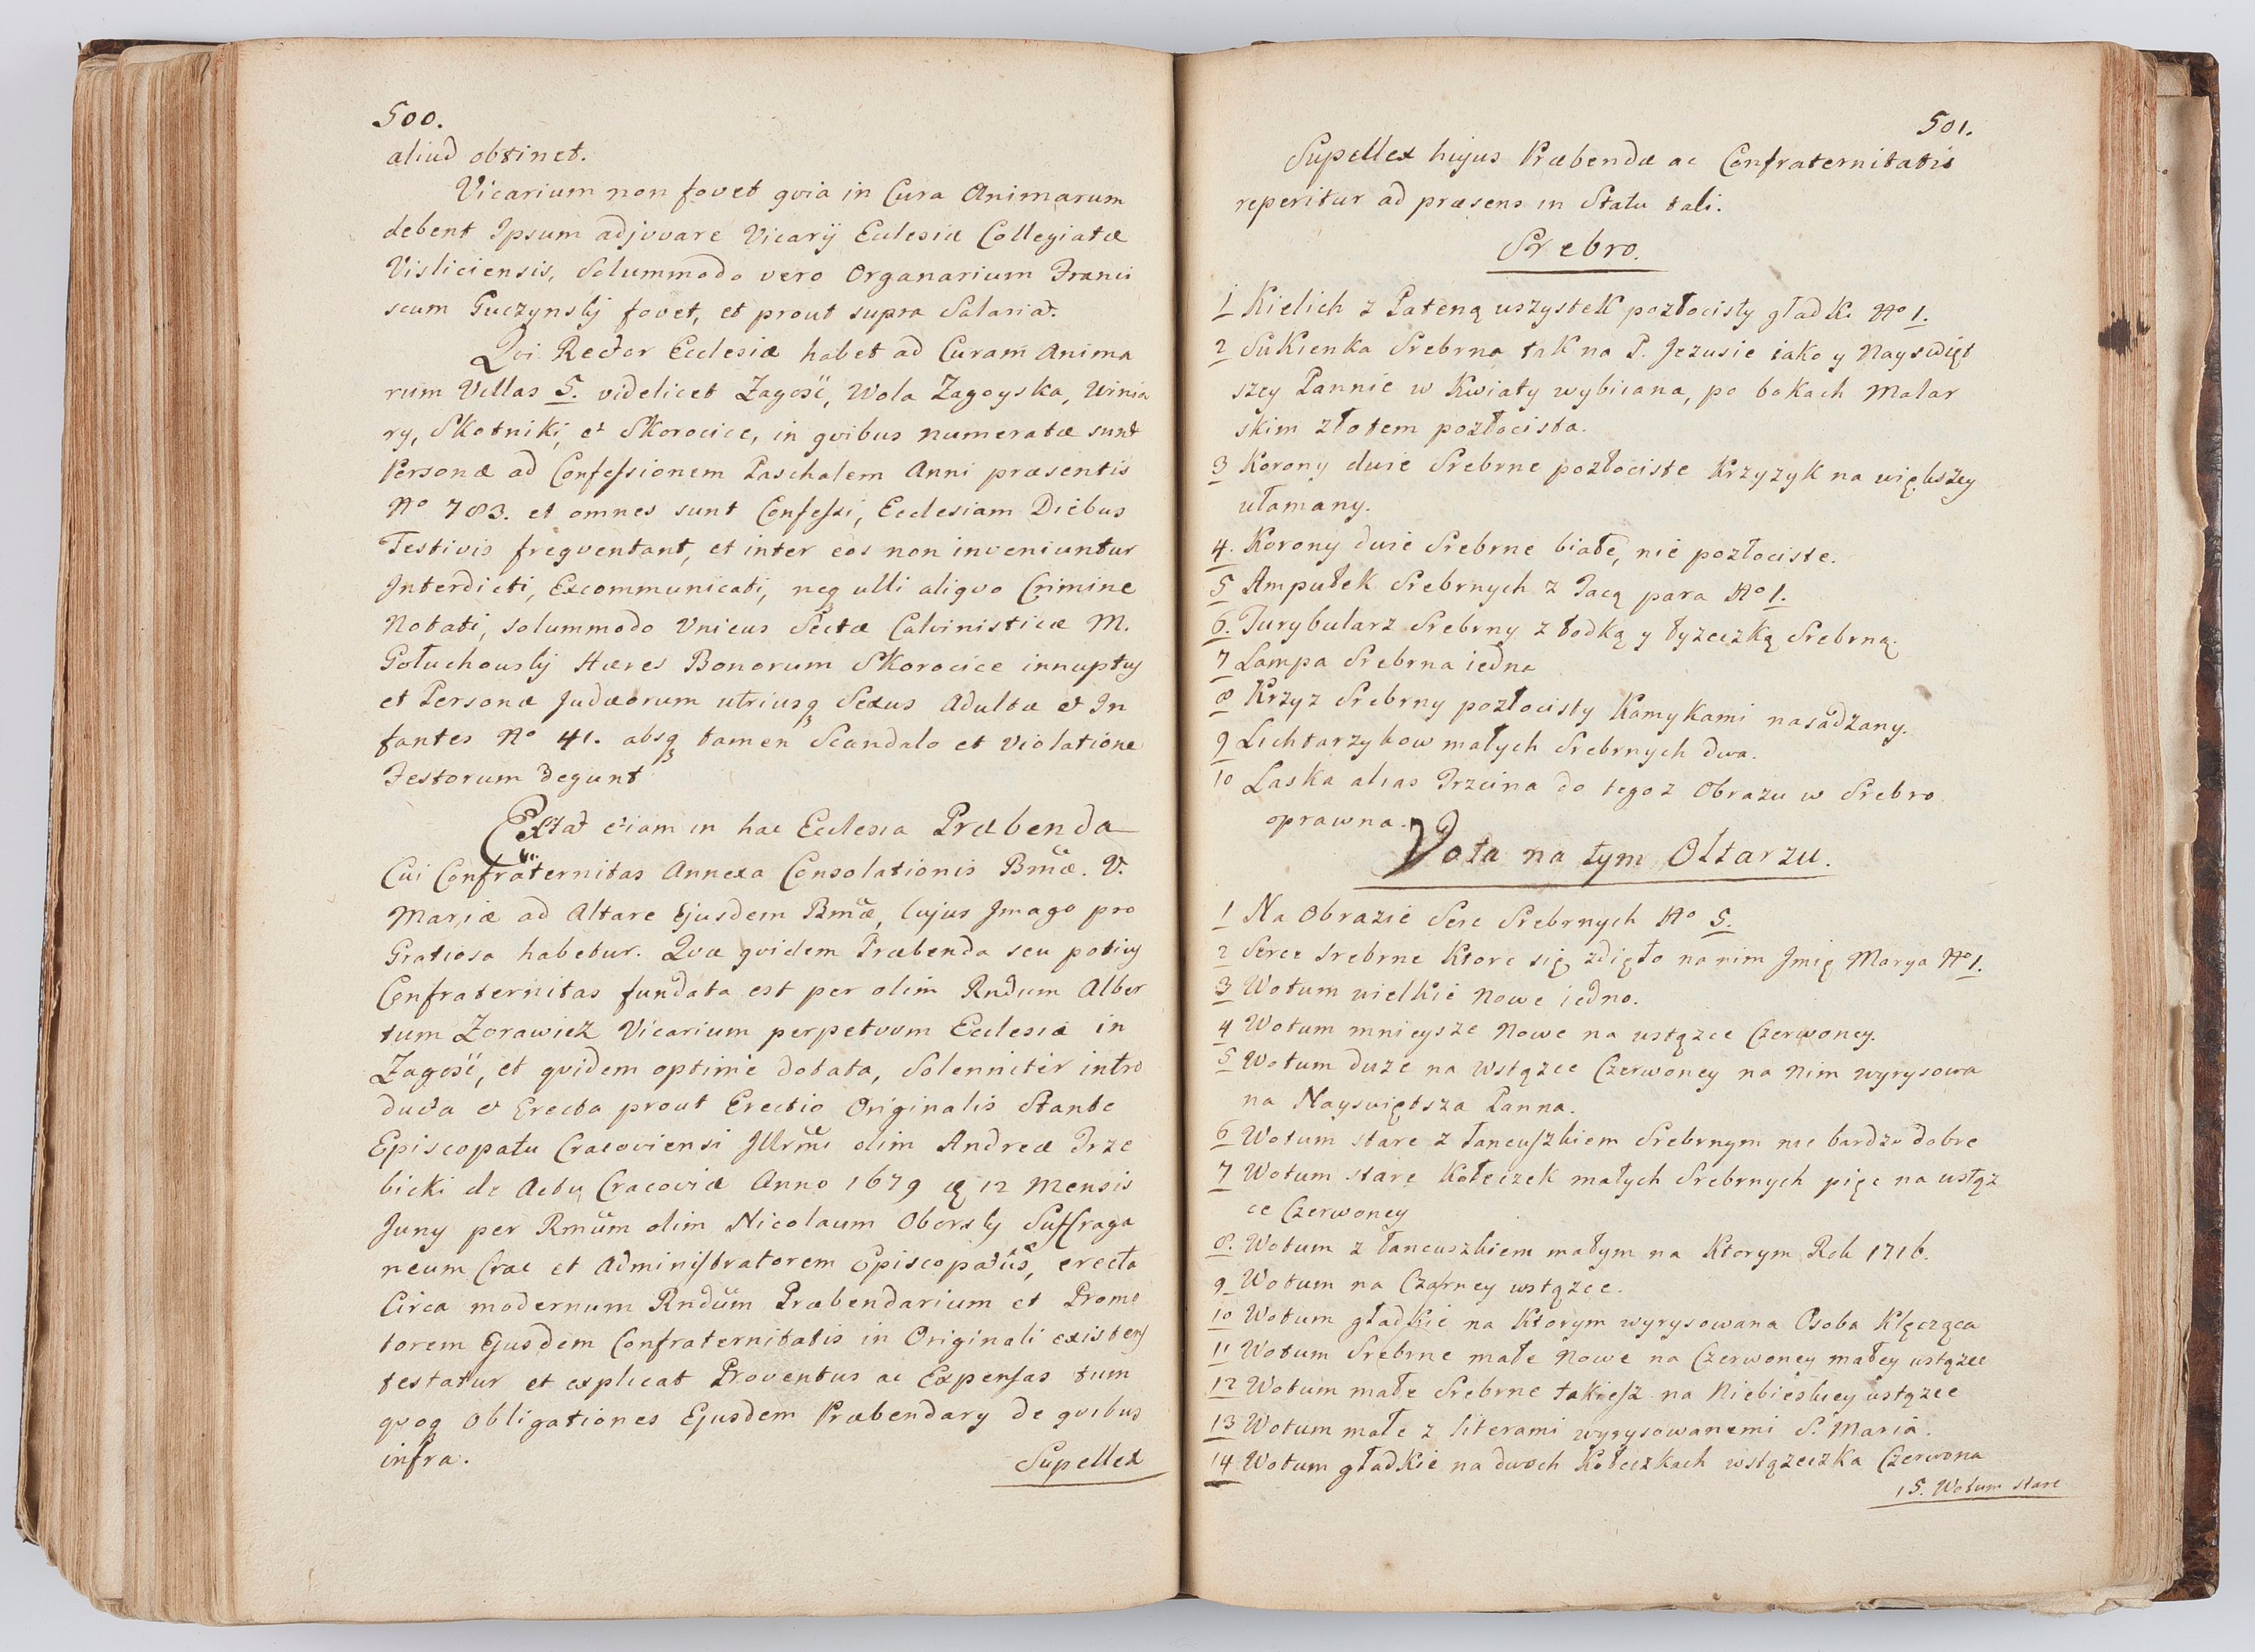 500.
aliud obtinet.
Vicarium non fovet qvia in Cura Animarum
debent Ipsum adjuvare Vicarij Eclesiæ Collegiatæ
Visliciensis, Solummodo vero Organarium Franci
scum Guczynskj fovet, et prout supra Salariat.
Qvi Rector Ecclesiæ habet ad Curam Anima
rum Villas 5. videlicet Zagość, Wola Zagoyska, Winia
ry, Skotniki, et Skorocice, in qvibus numeratæ sunt
Personæ ad Confessionem Paschalem Anni præsentis
No 783. et omnes sunt Confessi, Ecclesiam Diebus
Festivis freqventant, et inter eos non inveniuntur
Interdicti, Excommunicati, neq ulli aliqvo Crimine
Notati, solummodo Unicus Sectæ Calvinisticæ M.
Gołuchowskj Hæres Bonorum Skorocice innuptus
et Personæ Judæorum utriusq Sexus Adultæ et In
fantes No 41. absq tamen Scandalo et violatione
Festorum degunt
Extat etiam in hac Ecclesia Præbenda
Cui Confraternitas Annexa Consolationis Bmæ. V.
Mariæ ad Altare Ejusdem Bmæ, Cujus Imago pro
Gratiosa habetur. Qvæ qvidem Præbenda seu potius
Confraternitas fundata est per olim Rndum Alber
tum Zorawicz Vicarium perpetuum Ecclesiæ in
Zagość, et qvidem optime dotata, Solenniter intro
ducta et Erecta prout Erectio Originalis Stante
Episcopatu Cracoviensi Illrmi olim Andreæ Trze
bicki de Actu Cracoviæ Anno 1679 12 Mensis
Juny per Rmum olim Nicolaum Oborskj Suffraga
neum Crac et Administratorem Episcopatus, erecta
Circa modernum Rndum Præbendarium et Promo
torem Ejusdem Confraternitatis in Originali existens
testatur et explicat Proventus ac Expensas tum
qvoq Obligationes Ejusdem Præbendary de qvibus
infra.
Supellex
501.
Supellex hujus Præbendæ ac Confraternitatis
reperitur ad præsens in Statu tali.
Srebro.
1 Kielich z Pateną wszystek pozłocisty gładki No 1.
2 Sukienka Srebrna tak na P. Jezusie iako y Nayswięt
szey Pannie w Kwiaty wybiiana, po bokach Malar
skim złotem pozłocista.
3 Korony dwie Srebrne pozłociste Krzyzyk na większey
ułamany.
4. Korony dwie Srebrne białe, nie pozłociste.
5 Ampułek Srebrnych z Tacą para No 1.
6. Turybularz Srebrny z łodką y łyzeczką Srebrną.
7 Lampa Srebrna iedna
8 Krzyz Srebrny pozłocisty Kamykami nasadzany.
9 Lichtarzykow małych Srebrnych dwa.
10 Laska alias Trzcina do tegoz Obrazu w Srebro
oprawna.
Vota na tym Ołtarzu.
1 Na Obrazie Serc Srebrnych No 5.
2 Serce srebrne Ktore się zdięło na nim Imię Marya No 1.
3 Wotum wielkie Nowe iedno.
4 Wotum mnieysze Nowe na wstązce Czerwoney.
5 Wotum duze na Wstązce Czerwoney na Nim wyrysowa
na Nayswiętsza Panna.
6 Wotum stare z łancuszkiem Srebrnym nie bardzo dobre
7 Wotum stare Kołeczek małych Srebrnych pięc na wstąz
ce Czerwoney
8. Wotum z łancuszkiem małym na Ktorym Rok 1716.
9 Wotum na Czarney wstązce.
10 Wotum gładkie na Ktorym wyrysowana Osoba Klęcząca
11 Wotum Srebrne małe Nowe na Czerwoney małey wstązce
12 Wotum małe Srebrne takiesz na Niebieskiey wstązce
13 Wotum małe z literami wyrysowanemi S. Maria.
14 Wotum gładkie na dwoch Kołeczkach wstązeczka Czerwona
15. Wotum stare